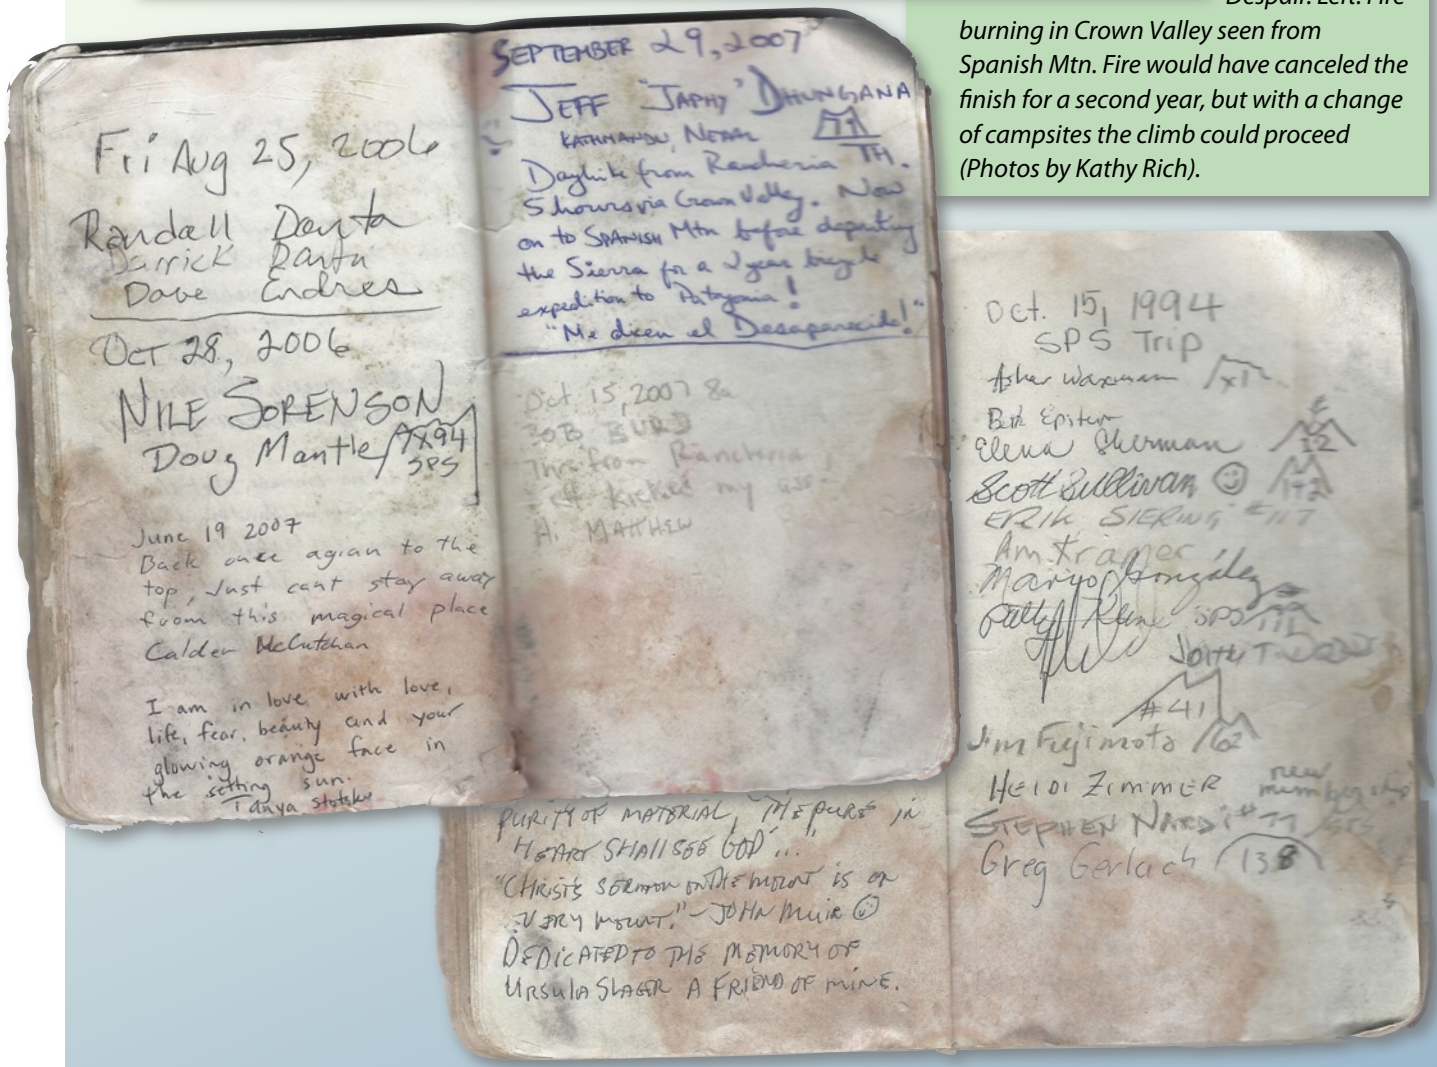 Despair. Left: Fire
burning in Crown Valley seen from
Spanish Mtn. Fire would have canceled the
finish for a second year, but with a change
of campsites the climb could proceed
(Photos by Kathy Rich).
Fri Aug 25, 2006
Randall Danta
Darrick Danta
Dave Endres
OCT 28, 2006
NILE SORENSON
Doug Mantle X94
SPS
June 19 2007
Back once agian to the
top, Just cant stay away
from this magical place
Calder McCutchan
I am in love with love,
life, fear, beauty and your
glowing orange face in
the setting sun.
Tanya
SEPTEMBER 29, 2007
JEFF "JAPHY" DHUNGANA
KATHMANDU, NEPAL
Dayhike from Rancheria TH.
5 hours via Crown Valley. Now
on to SPANISH Mtn before departing
the Sierra for a 2 year bicycle
expedition to Patagonia!
"Me dicen el Desaparecido!"
Oct. 15, 2007 8a
BOB BURD
7hrs from Rancheria
kicked my ass
Hi MATTHEW
PURITY OF MATERIAL, "THE PURE IN
HEART SHALL SEE GOD"...
"CHRIST'S SERMON ON THE MOUNT IS ON
EVERY MOUNT." - JOHN MUIR
DEDICATED TO THE MEMORY OF
URSULA SLAGER A FRIEND OF MINE.
Oct. 15, 1994
SPS Trip
Asher Waxman X1
Epstein
Elena Sherman 12
Scott Sullivan 142
ERIK SIERING #117
Mario González
Patty Kline SPS
#41
Jim Fujimoto 62
HEIDI ZIMMER new membership
STEPHEN NARDI #77
Greg Gerlach 138